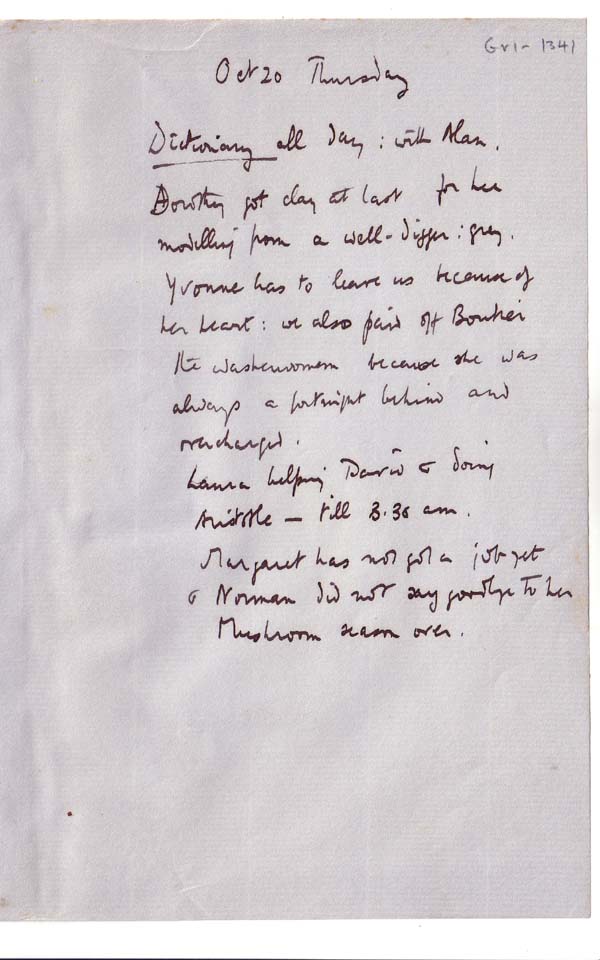 Gr1-1341
Oct 20 Thursday
Dictionary all day : with Alan.
Dorothy got clay at last for her
modelling from a well-digger : grey.
Yvonne has to leave us because of
her heart : we also paid off
the washerwoman because she was
always a fortnight behind and
overcharged.
Laura helping David & doing
Aristotle — till 3.30 am.
Margaret has not got a job yet
& Norman did not say goodbye to her
Mushroom season over.